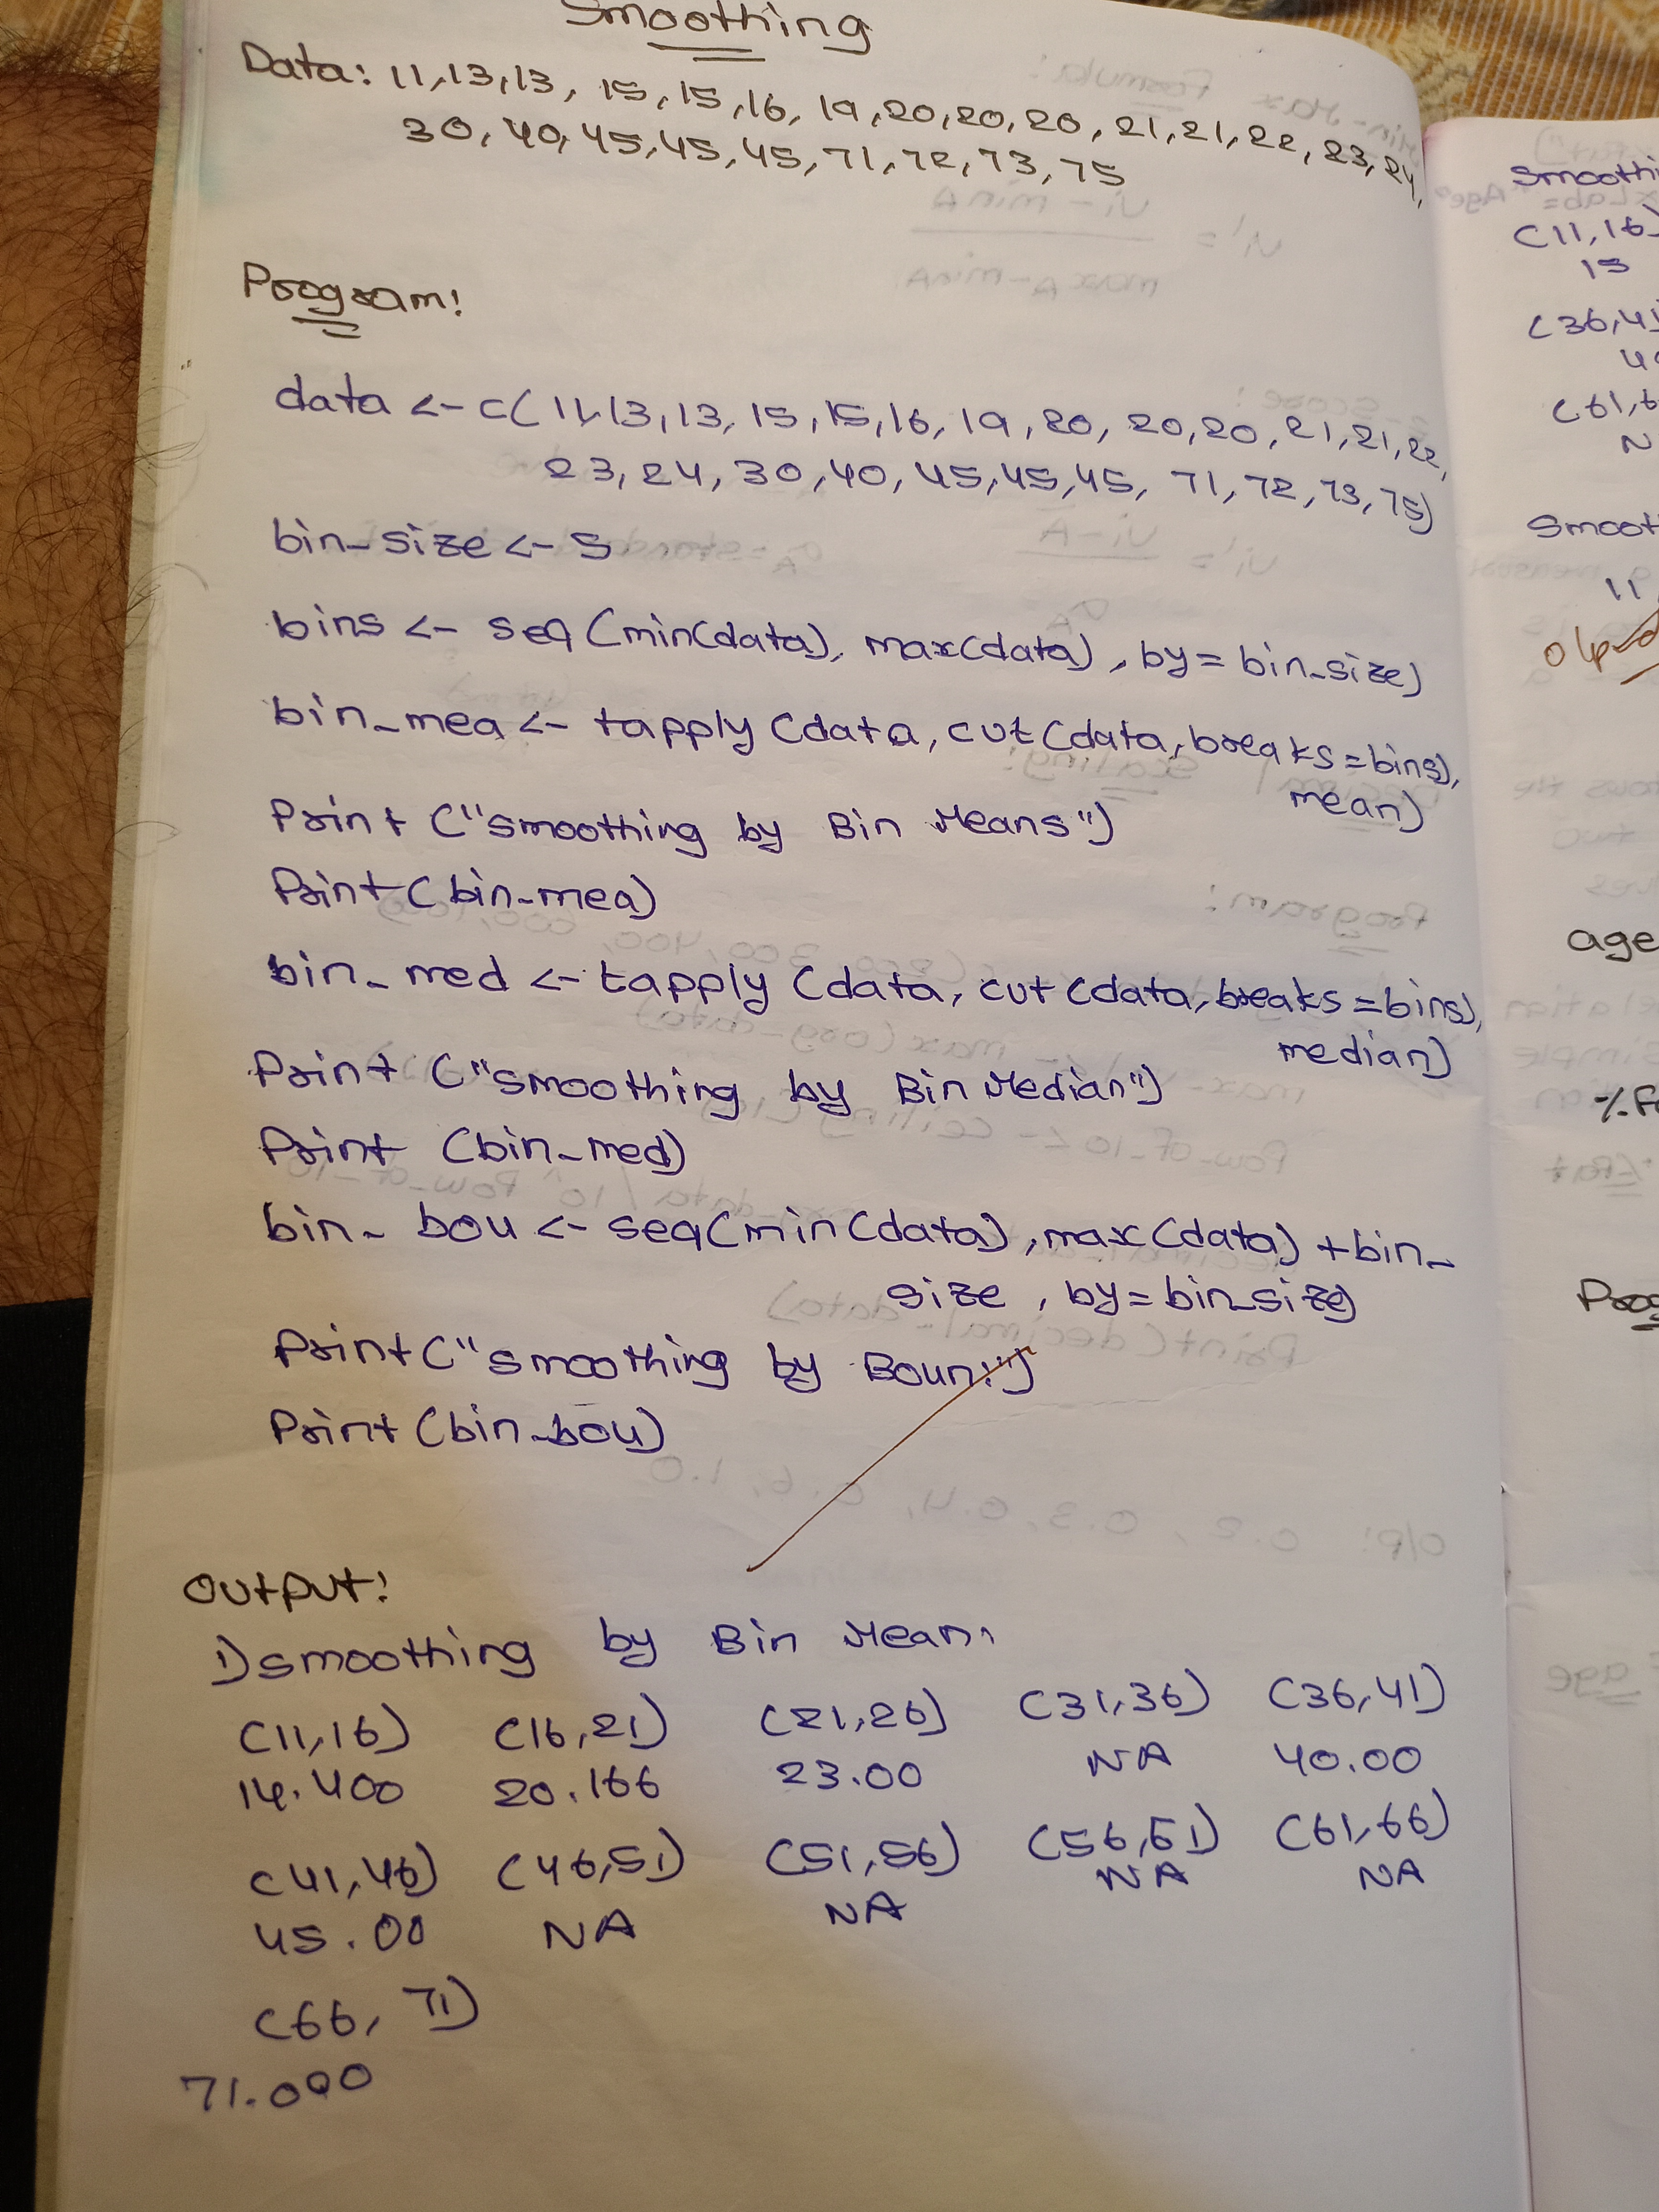 Smoothing
Data: 11,13,13, 15,15,16, 19,20,20,20, 21,21,22,23,24,
30,40,45,45,45,71,72,73,75
Program:
data <- c(11,13,13,15,15,16,19,20,20,20,21,21,22,
23,24,30,40,45,45,45,71,72,73,75)
bin_size <- 5
bins <- seq(min(data), max(data), by=bin_size)
bin_mea <- tapply(data, cut(data, breaks=bins),
mean)
Print("smoothing by Bin Means")
Print(bin_mea)
bin_med <- tapply(data, cut(data, breaks=bins),
median)
Print("smoothing by Bin Median")
Print (bin_med)
bin_bou <- seq(min(data), max(data) +bin_
size, by=bin_size)
Print("smoothing by Boun:")
Print(bin_bou)
Output:
1) smoothing by Bin Mean:
(11,16) (16,21) (21,26) (31,36) (36,41)
14.400 20.166 23.00 NA 40.00
(41,46) (46,51) (51,56) (56,61) (61,66)
45.00 NA NA NA NA
(66, 71)
71.000
Smoothi
(11,16)
15
(36,41
(61,6
N
Smooth
11,
age
Prog